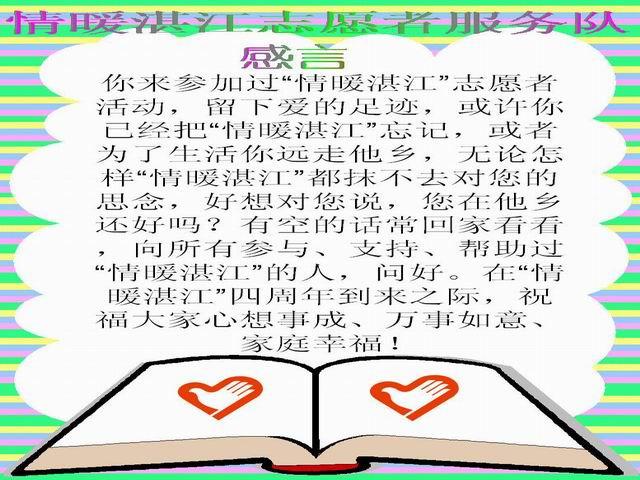 情暖湛江志愿者服务队
感言
你来参加过“情暖湛江”志愿者
活动，留下爱的足迹，或许你
已经把“情暖湛江”忘记，或者
为了生活你远走他乡，无论怎
样“情暖湛江”都抹不去对您的
思念，好想对您说，您在他乡
还好吗？有空的话常回家看看
，向所有参与、支持、帮助过
“情暖湛江”的人，问好。在“情
暖湛江”四周年到来之际，祝
福大家心想事成、万事如意、
家庭幸福！